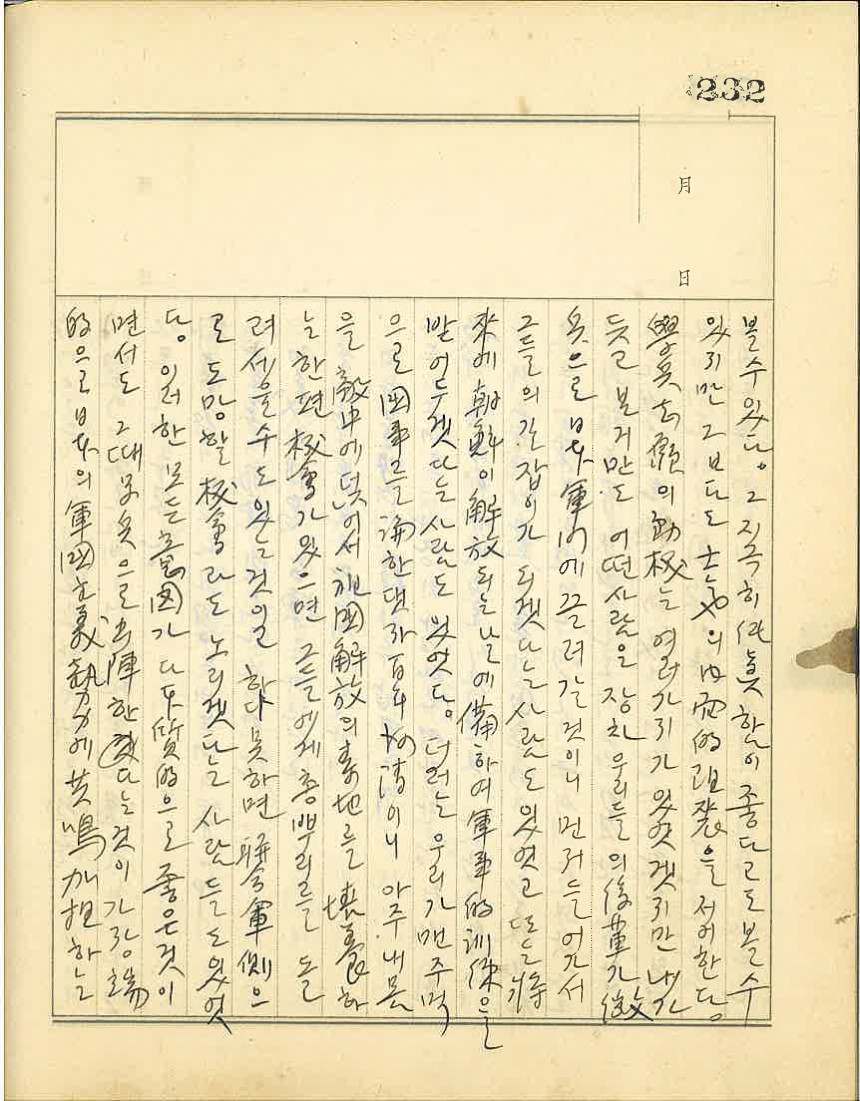 232
月
日
볼 수 있다。그 지극히 純眞함이 좋다고도 볼 수
있지만 그보다도 士氣의 內面的 現象을 저어한다。
學兵志願의 動機는 여러가지가 있엇겟지만 내가
듯고 보거만도 어떤사람은 장차 우리들의 後輩가 徵
兵으로 日本軍內에 끌려갈것이니 먼저 들어가서
그들의 길잡이가 되겟다는 사람도 있엇고 또는 將
來에 朝鮮이 解放되는 날에 備하여 軍事的訓練을
받어두겟다는 사람도 있엇다。더러는 우리가 맨주먹
으로 國事를 論한댓자 百年河淸이니 아주 내몸
을 敵中에 덧어서 祖國解放의 素地를 培養하
는 한편 機會가 있으면 그들에게 총뿌리를 돌
려 세울수도 있는것이고 하다못하면 聯合軍側으
로 도망할 機會라도 노리겟다는 사람들도 있엇
다。이러한 모든 意圖가 다 本質的으로 좋은것이
면서도 그때 學兵으로 出陣한다는것이 가장 端
的으로 日本의 軍國主義勢力에 共鳴加担하는